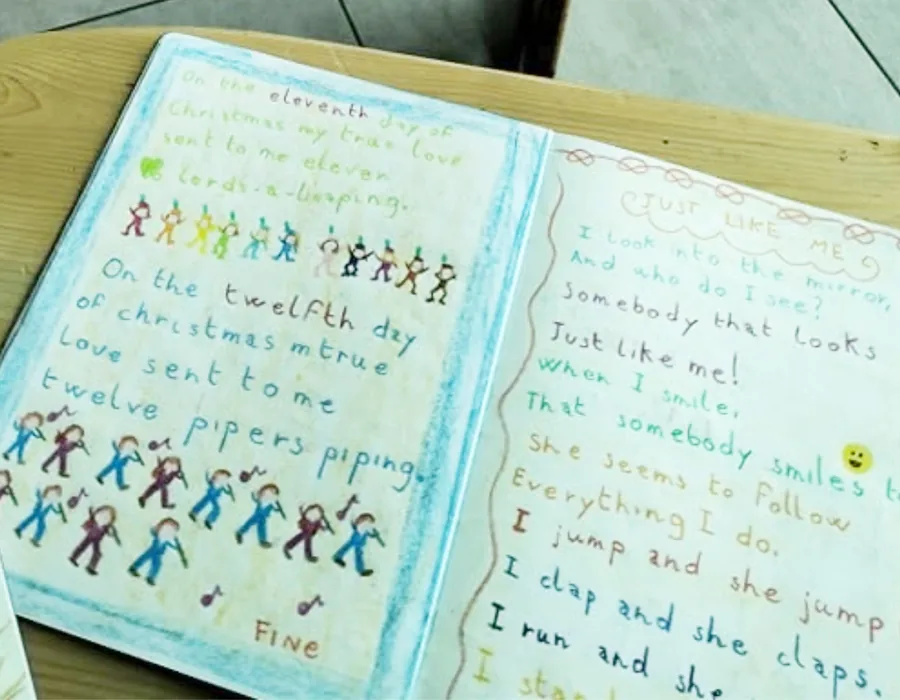 On the eleventh day of
Christmas my true love
sent to me eleven
lords-a-leaping.
On the twelfth day
of christmas mtrue
Love sent to me
twelve pipers piping.
FINE
JUST LIKE ME
I look into the mirror,
And who do I see?
Somebody that looks
Just like me!
When I smile,
That somebody smiles
She seems to follow
Everything I do.
I jump and she jump
I clap and she claps.
I run and she
I